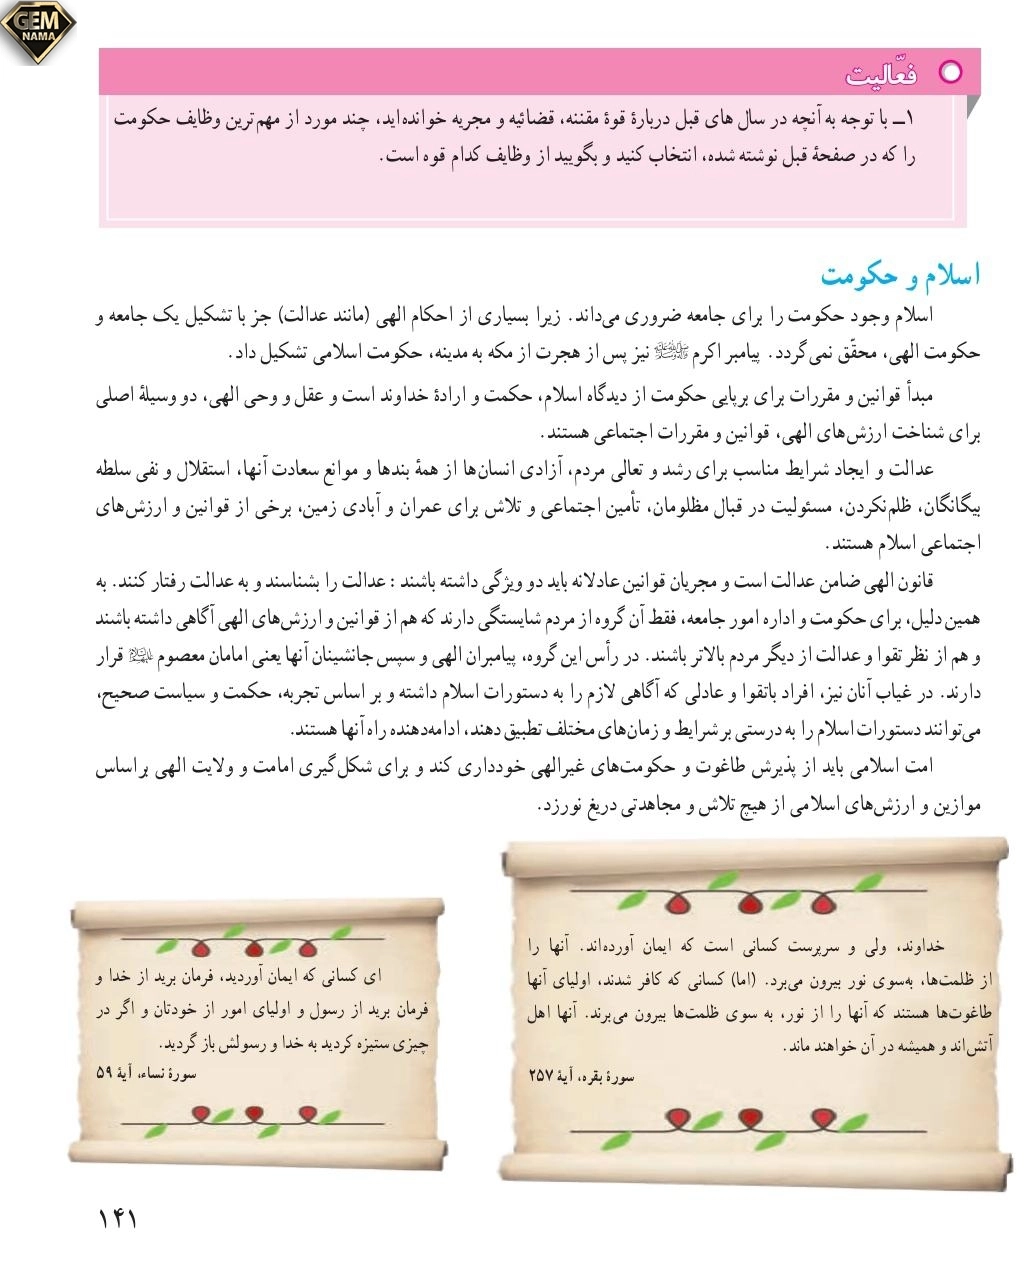 GEM
NAMA
فعّالیت
۱ــ با توجه به آنچه در سال های قبل دربارهٔ قوهٔ مقننه، قضائیه و مجریه خوانده‌اید، چند مورد از مهم‌ترین وظایف حکومت
را که در صفحهٔ قبل نوشته شده، انتخاب کنید و بگویید از وظایف کدام قوه است.
اسلام و حکومت
اسلام وجود حکومت را برای جامعه ضروری می‌داند. زیرا بسیاری از احکام الهی (مانند عدالت) جز با تشکیل یک جامعه و
حکومت الهی، محقّق نمی‌گردد. پیامبر اکرم ﷺ نیز پس از هجرت از مکه به مدینه، حکومت اسلامی تشکیل داد.
مبدأ قوانین و مقررات برای برپایی حکومت از دیدگاه اسلام، حکمت و ارادهٔ خداوند است و عقل و وحی الهی، دو وسیلهٔ اصلی
برای شناخت ارزش‌های الهی، قوانین و مقررات اجتماعی هستند.
عدالت و ایجاد شرایط مناسب برای رشد و تعالی مردم، آزادی انسان‌ها از همهٔ بندها و موانع سعادت آنها، استقلال و نفی سلطه
بیگانگان، ظلم‌نکردن، مسئولیت در قبال مظلومان، تأمین اجتماعی و تلاش برای عمران و آبادی زمین، برخی از قوانین و ارزش‌های
اجتماعی اسلام هستند.
قانون الهی ضامن عدالت است و مجریان قوانین عادلانه باید دو ویژگی داشته باشند : عدالت را بشناسند و به عدالت رفتار کنند. به
همین دلیل، برای حکومت و اداره امور جامعه، فقط آن گروه از مردم شایستگی دارند که هم از قوانین و ارزش‌های الهی آگاهی داشته باشند
و هم از نظر تقوا و عدالت از دیگر مردم بالاتر باشند. در رأس این گروه، پیامبران الهی و سپس جانشینان آنها یعنی امامان معصوم علیه‌السلام قرار
دارند. در غیاب آنان نیز، افراد باتقوا و عادلی که آگاهی لازم را به دستورات اسلام داشته و بر اساس تجربه، حکمت و سیاست صحیح،
می‌توانند دستورات اسلام را به درستی بر شرایط و زمان‌های مختلف تطبیق دهند، ادامه‌دهنده راه آنها هستند.
امت اسلامی باید از پذیرش طاغوت و حکومت‌های غیرالهی خودداری کند و برای شکل‌گیری امامت و ولایت الهی براساس
موازین و ارزش‌های اسلامی از هیچ تلاش و مجاهدتی دریغ نورزد.
خداوند، ولی و سرپرست کسانی است که ایمان آورده‌اند. آنها را
از ظلمت‌ها، به‌سوی نور بیرون می‌برد. (اما) کسانی که کافر شدند، اولیای آنها
طاغوت‌ها هستند که آنها را از نور، به سوی ظلمت‌ها بیرون می‌برند. آنها اهل
آتش‌اند و همیشه در آن خواهند ماند.
سورهٔ بقره، آیهٔ ۲۵۷
ای کسانی که ایمان آوردید، فرمان برید از خدا و
فرمان برید از رسول و اولیای امور از خودتان و اگر در
چیزی ستیزه کردید به خدا و رسولش باز گردید.
سورهٔ نساء، آیهٔ ۵۹
۱۴۱